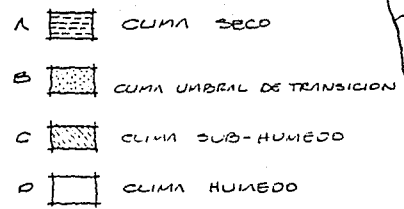 A CLIMA SECO
B CLIMA UMBRAL DE TRANSICION
C CLIMA SUB-HUMEDO
D CLIMA HUMEDO